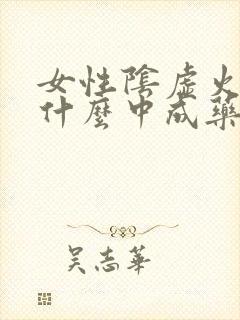 女性陰虛火
什麼中成藥
吳志華